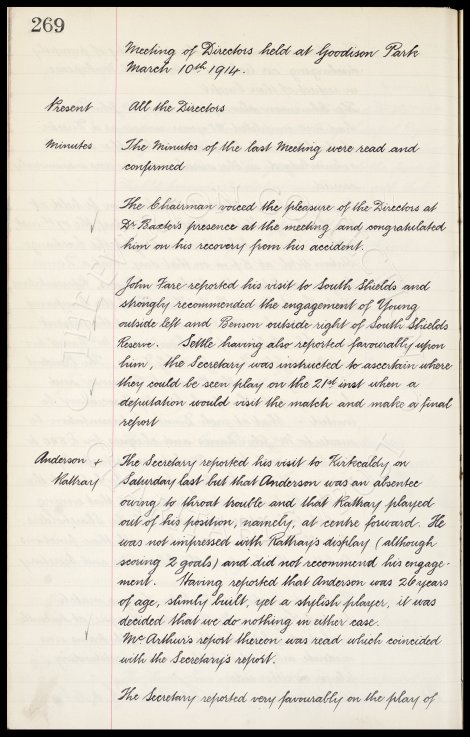 269
Meeting of Directors held at Goodison Park
March 10th 1914.
Present All the Directors
Minutes The Minutes of the last Meeting were read and
confirmed
The Chairman voiced the pleasure of the Directors at
Dr Baxter's presence at the meeting and congratulated
him on his recovery from his accident.
John Fare reported his visit to South Shields and
strongly recommended the engagement of Young
outside left and Benson outside right of South Shields
Reserve. Settle having also reported favourably upon
him, the Secretary was instructed to ascertain where
they could be seen play on the 21st inst when a
deputation would visit the match and make a final
report
Anderson + The Secretary reported his visit to Kirkcaldy on
Rattray Saturday last but that Anderson was an absentee
owing to throat trouble and that Rattray played
out of his position, namely, at centre forward. He
was not impressed with Rattray's display (although
scoring 2 goals) and did not recommend his engage-
ment. Having reported that Anderson was 26 years
of age, slimly built, yet a stylish player, it was
decided that we do nothing in either case.
Mr Arthur's report thereon was read which coincided
with the Secretary's report.
The Secretary reported very favourably on the play of